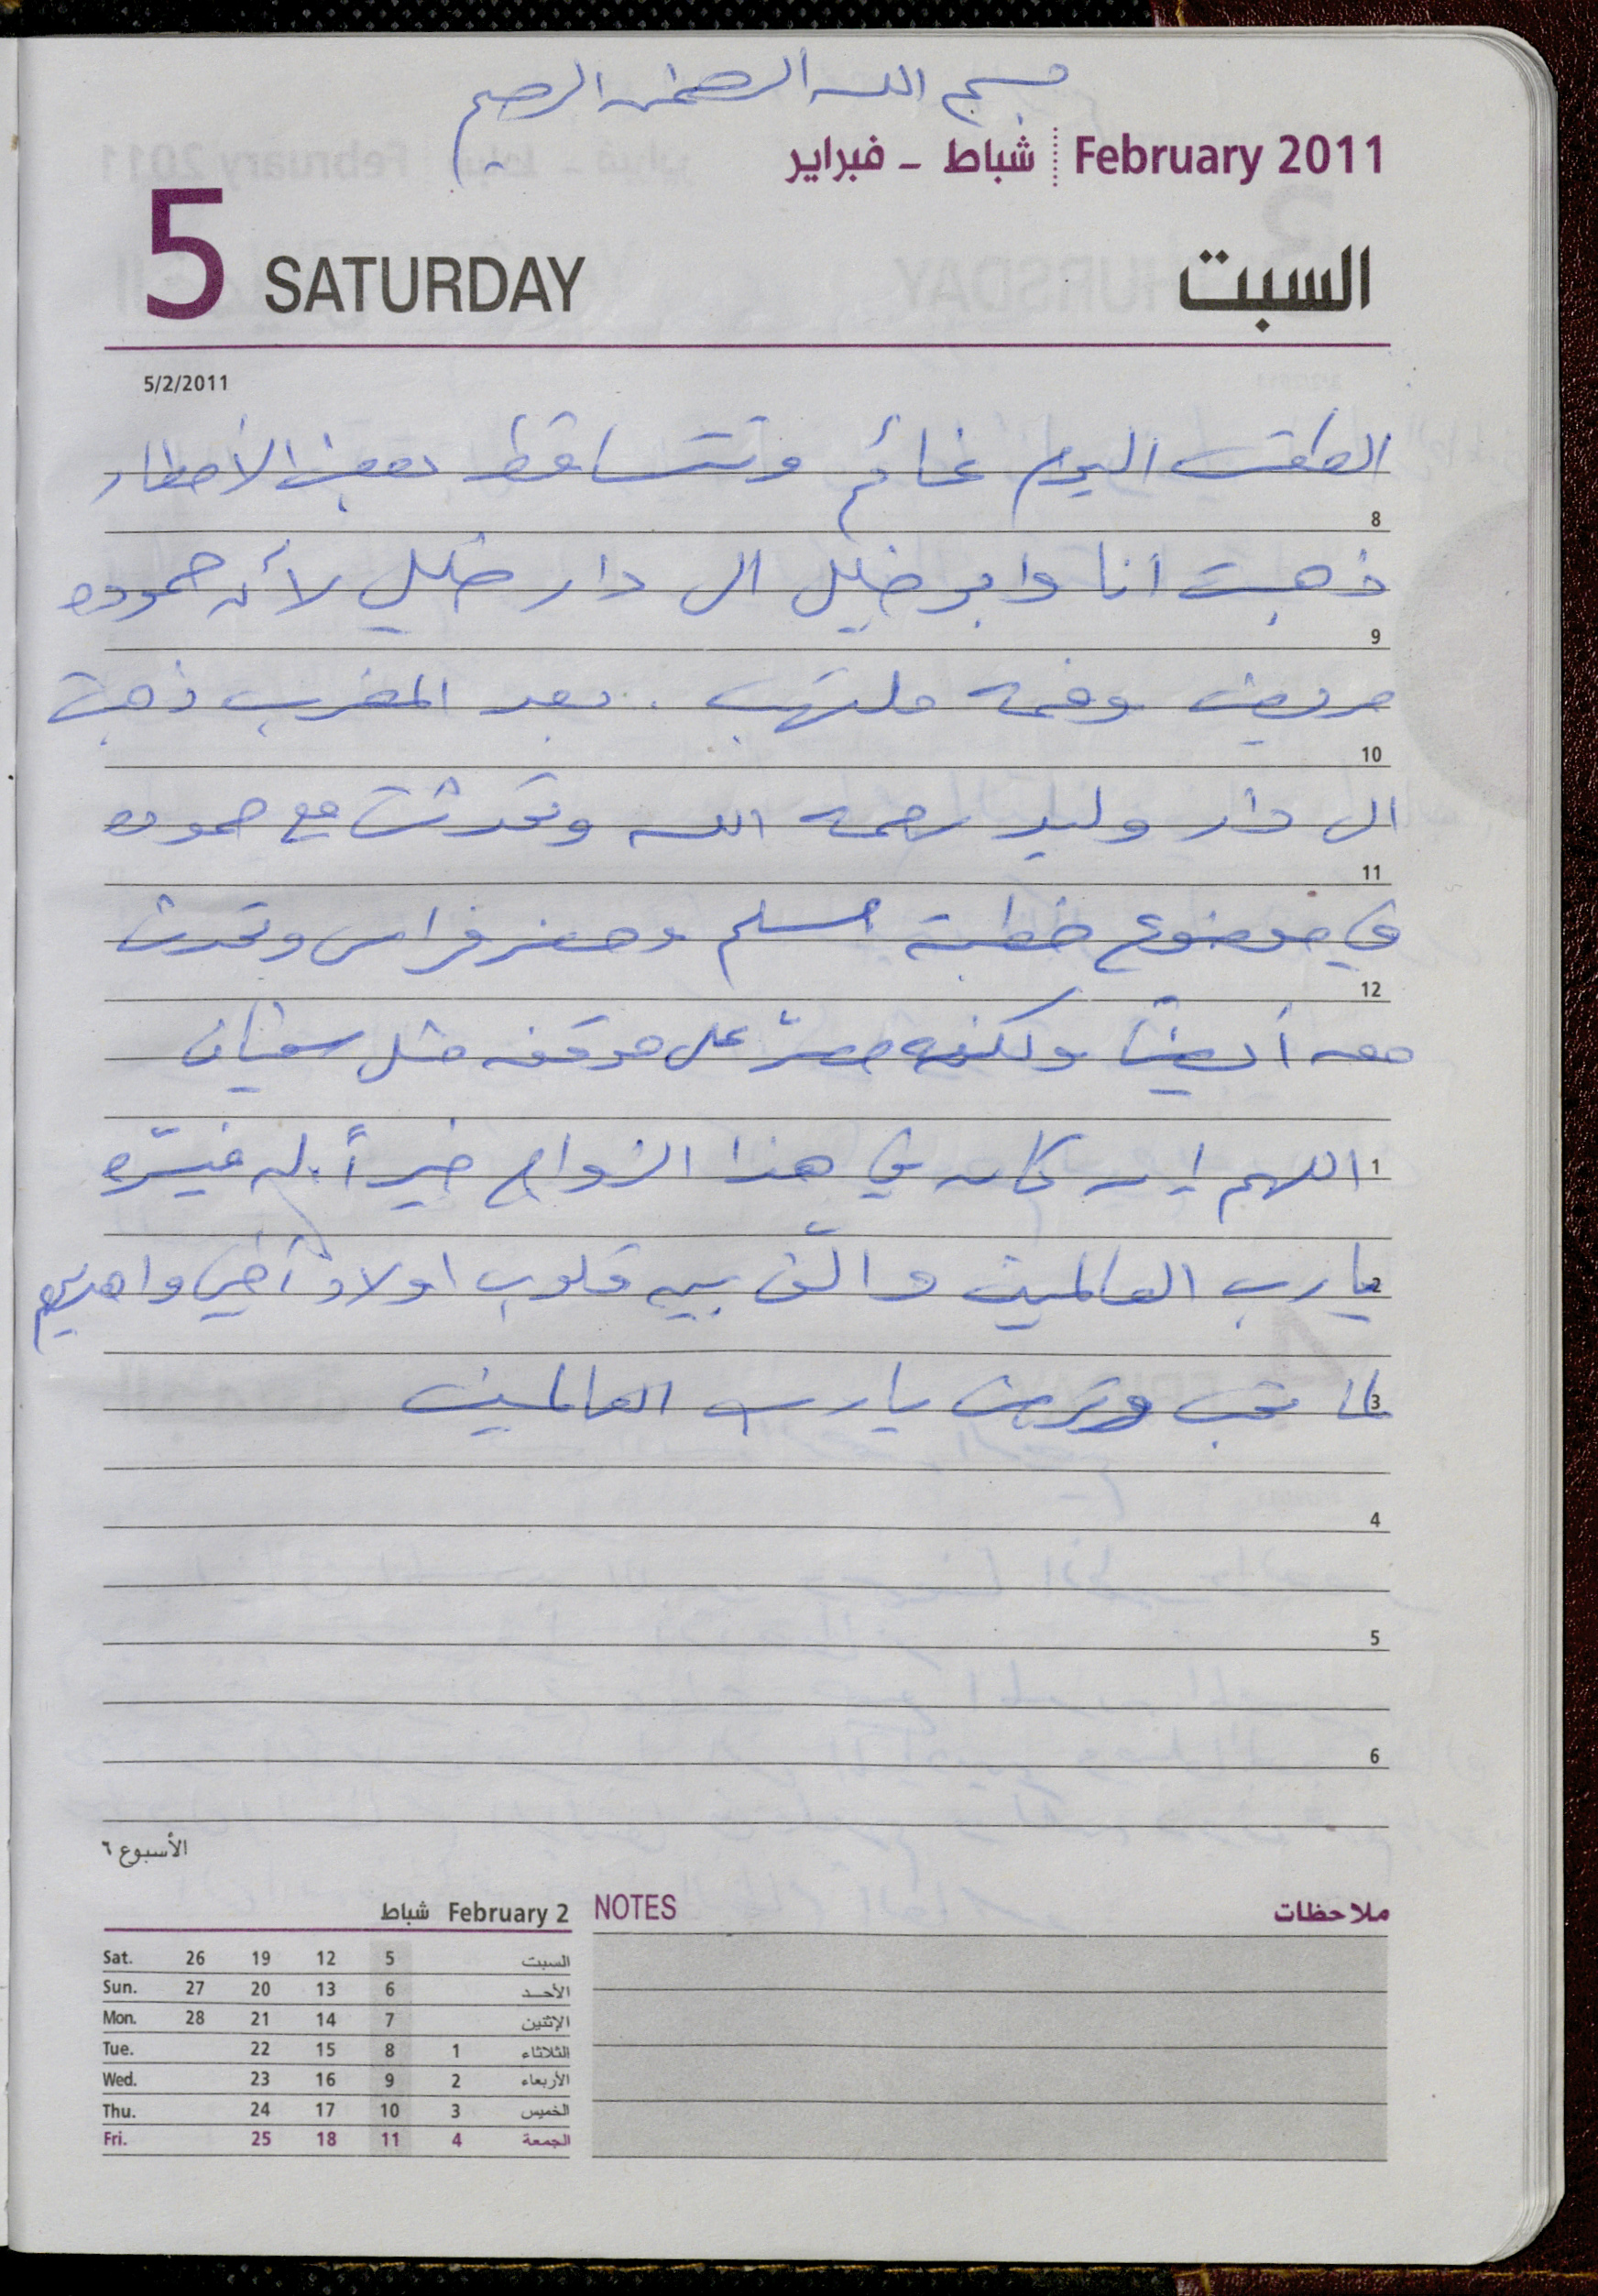 بسم الله الرحمن الرحيم
February 2011 شباط - فبراير
5 SATURDAY السبت
5/2/2011
الطقس اليوم غائم وتتساقط بعض الأمطار
8
ذهبت انا وابو خليل الى دار خليل لأن حموده
9
مريض وفمه ملتهب . بعد المغرب ذهبت
10
الى دار وليد رحمه الله وتحدثت مع حموده
11
في موضوع خطبة مسلم وحضر فراس وتحدثت
12
معه أيضاً ولكنه مصرّ على موقفه مثل سفيان
1 اللهم إن كان في هذا الزواج خيراً له فيسّره
2 يا رب العالمين والّف بين قلوب اولاد أخي واهديهم
3 لما تحب وترضى يا رب العالمين
4
5
6
الأسبوع ٦
February 2 شباط
Sat. 26 19 12 5 السبت
Sun. 27 20 13 6 الأحد
Mon. 28 21 14 7 الإثنين
Tue. 22 15 8 1 الثلاثاء
Wed. 23 16 9 2 الأربعاء
Thu. 24 17 10 3 الخميس
Fri. 25 18 11 4 الجمعة
NOTES ملاحظات